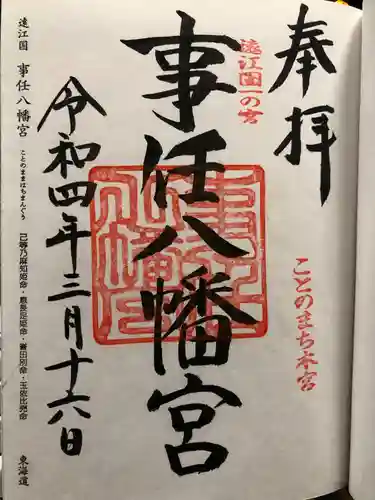 奉拝
遠江国一の宮
ことのまち本宮
事任八幡宮
事任八幡宮
令和四年三月十六日
遠江国 事任八幡宮 ことのままはちまんぐう 己等乃麻知媛命・息長足姫命・誉田別命・玉依比売命 東海道